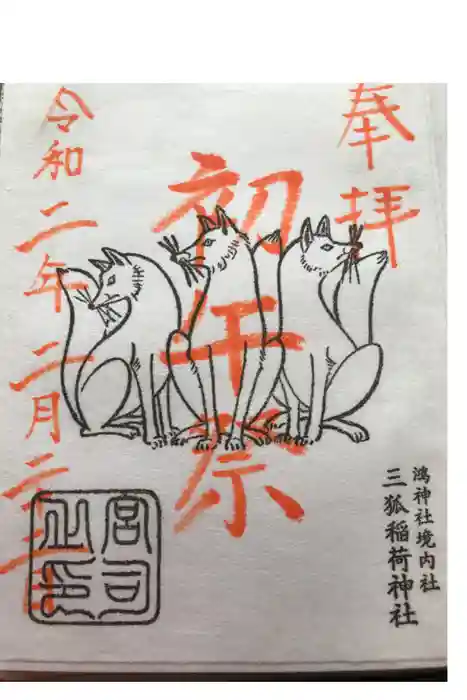 奉拝
初午祭
令和二年二月二十三日
鴻神社境内社
三狐稲荷神社
宮司之印